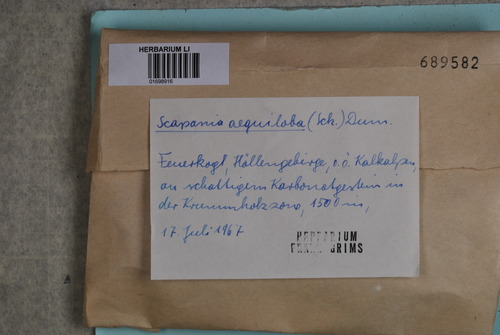 HERBARIUM LI
01698916
689582
Scapania aequiloba (Sch.) Dum.
Feuerkogl, Höllengebirge, o.ö. Kalkalpen,
an schattigem Karbonatgestein in
der Krummholzzone, 1500 m,
17. Juli 1967
HERBARIUM
FRANZ GRIMS